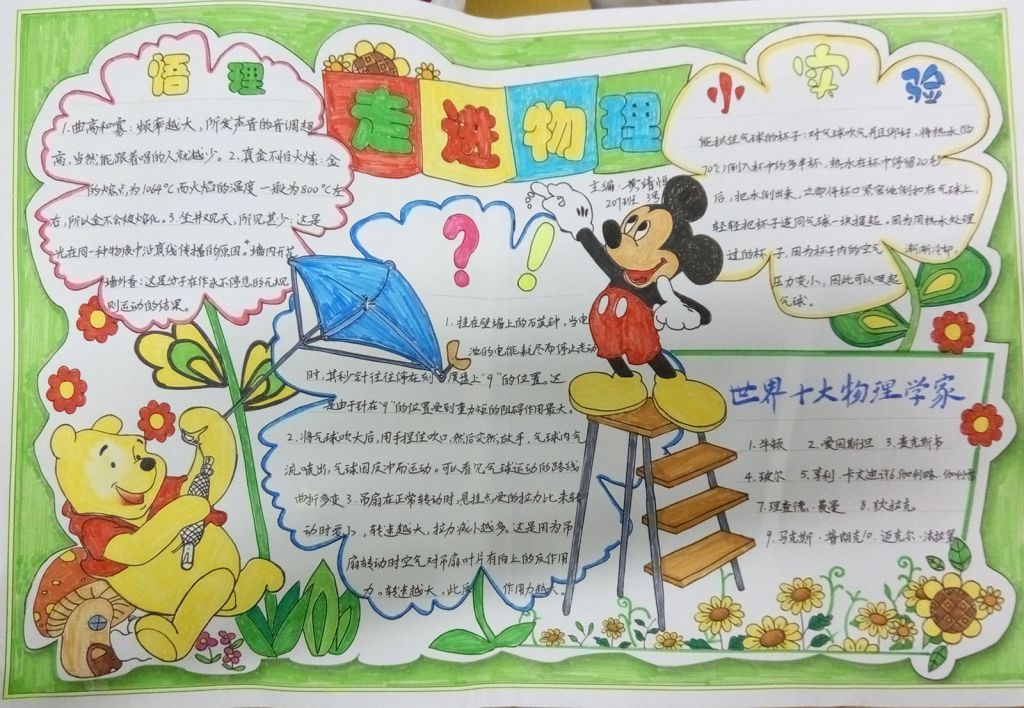 悟理
1.曲高和寡:频率越大,所发声音的音调越
高,当然能跟着唱的人就越少。2.真金不怕火炼:金
的熔点为1064℃而火焰的温度一般为800℃左
右,所以金不会被熔化。3.坐井观天,所见甚少:这是
光在同一种物质中沿直线传播的原因。墙内开花
墙外香:这是分子在作永不停息的无规
则运动的结果。
走进物理
主编:黄绪恒
207班 3号
小实验
能抓住气球的杯子:对气球吹气并且绑好,将热水(约
70℃)倒入杯中约多半杯,热水在杯中停留20秒
后,把水倒出来,立即将杯口紧密地倒扣在气球上,
轻轻把杯子连同气球一块提起。因为用热水处理
过的杯子,因为杯子内的空气渐渐冷却,
压力变小,因此可以吸起
气球。
?!
1.挂在壁墙上的石英钟,当电
池的电能耗尽而停止走动
时,其秒针往往停在刻度盘上“9”的位置。这
是由于针在“9”的位置受到重力矩的阻碍作用最大。
2.将气球吹大后,用手捏住吹口,然后突然放手,气球内气
流喷出,气球因反冲而运动。可以看见气球运动的路线
曲折多变 3.吊扇在正常转动时,悬挂点受的拉力比未转
动时要小,转速越大,拉力减小越多。这是因为吊
扇转动时空气对吊扇叶片有向上的反作用
力。转速越大,此反作用力越大。
世界十大物理学家
1.牛顿 2.爱因斯坦 3.麦克斯韦
4.玻尔 5.亨利·卡文迪许6.伽利略·伽利雷
7.理查德·费曼 8.狄拉克
9.马克斯·普朗克10.迈克尔·法拉第